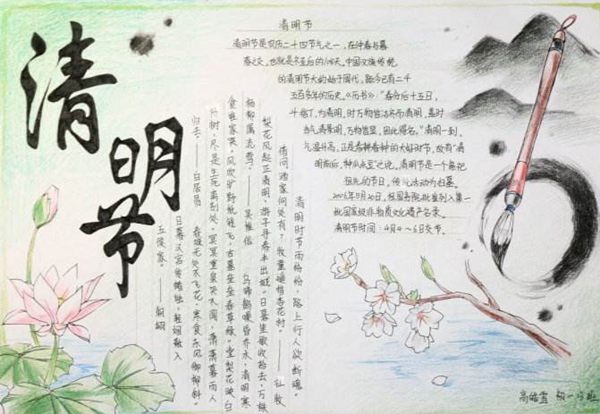 清明节
清明节
清明节是农历二十四节气之一，在仲春与暮
春之交，也就是冬至后的108天。中国汉族传统
的清明节大约始于周代，距今已有二千
五百多年的历史。《历书》："春分后十五日，
斗指丁，为清明，时万物皆洁齐而清明，盖时
当气清景明，万物皆显，因此得名。"清明一到，
气温升高，正是春耕春种的大好时节，故有"清
明前后，种瓜点豆"之说。清明节是一个祭祀
祖先的节日，传统活动为扫墓。
2006年5月20日，经国务院批准列入第一
批国家级非物质文化遗产名录。
清明节时间：4月4～6日交节。
清明时节雨纷纷，路上行人欲断魂。
借问酒家何处有？牧童遥指杏花村。——杜牧
梨花风起正清明，游子寻春半出城。日暮笙歌收拾去，万株
杨柳属流莺。——吴惟信　乌啼鹊噪昏乔木，清明寒
食谁家哭。风吹旷野纸钱飞，古墓垒垒春草绿。棠梨花映白
杨树，尽是生死离别处。冥冥重泉哭不闻，萧萧暮雨人
归去。——白居易　春城无处不飞花，寒食东风御柳斜。
日暮汉宫传蜡烛，轻烟散入
五侯家。——韩翃
初一